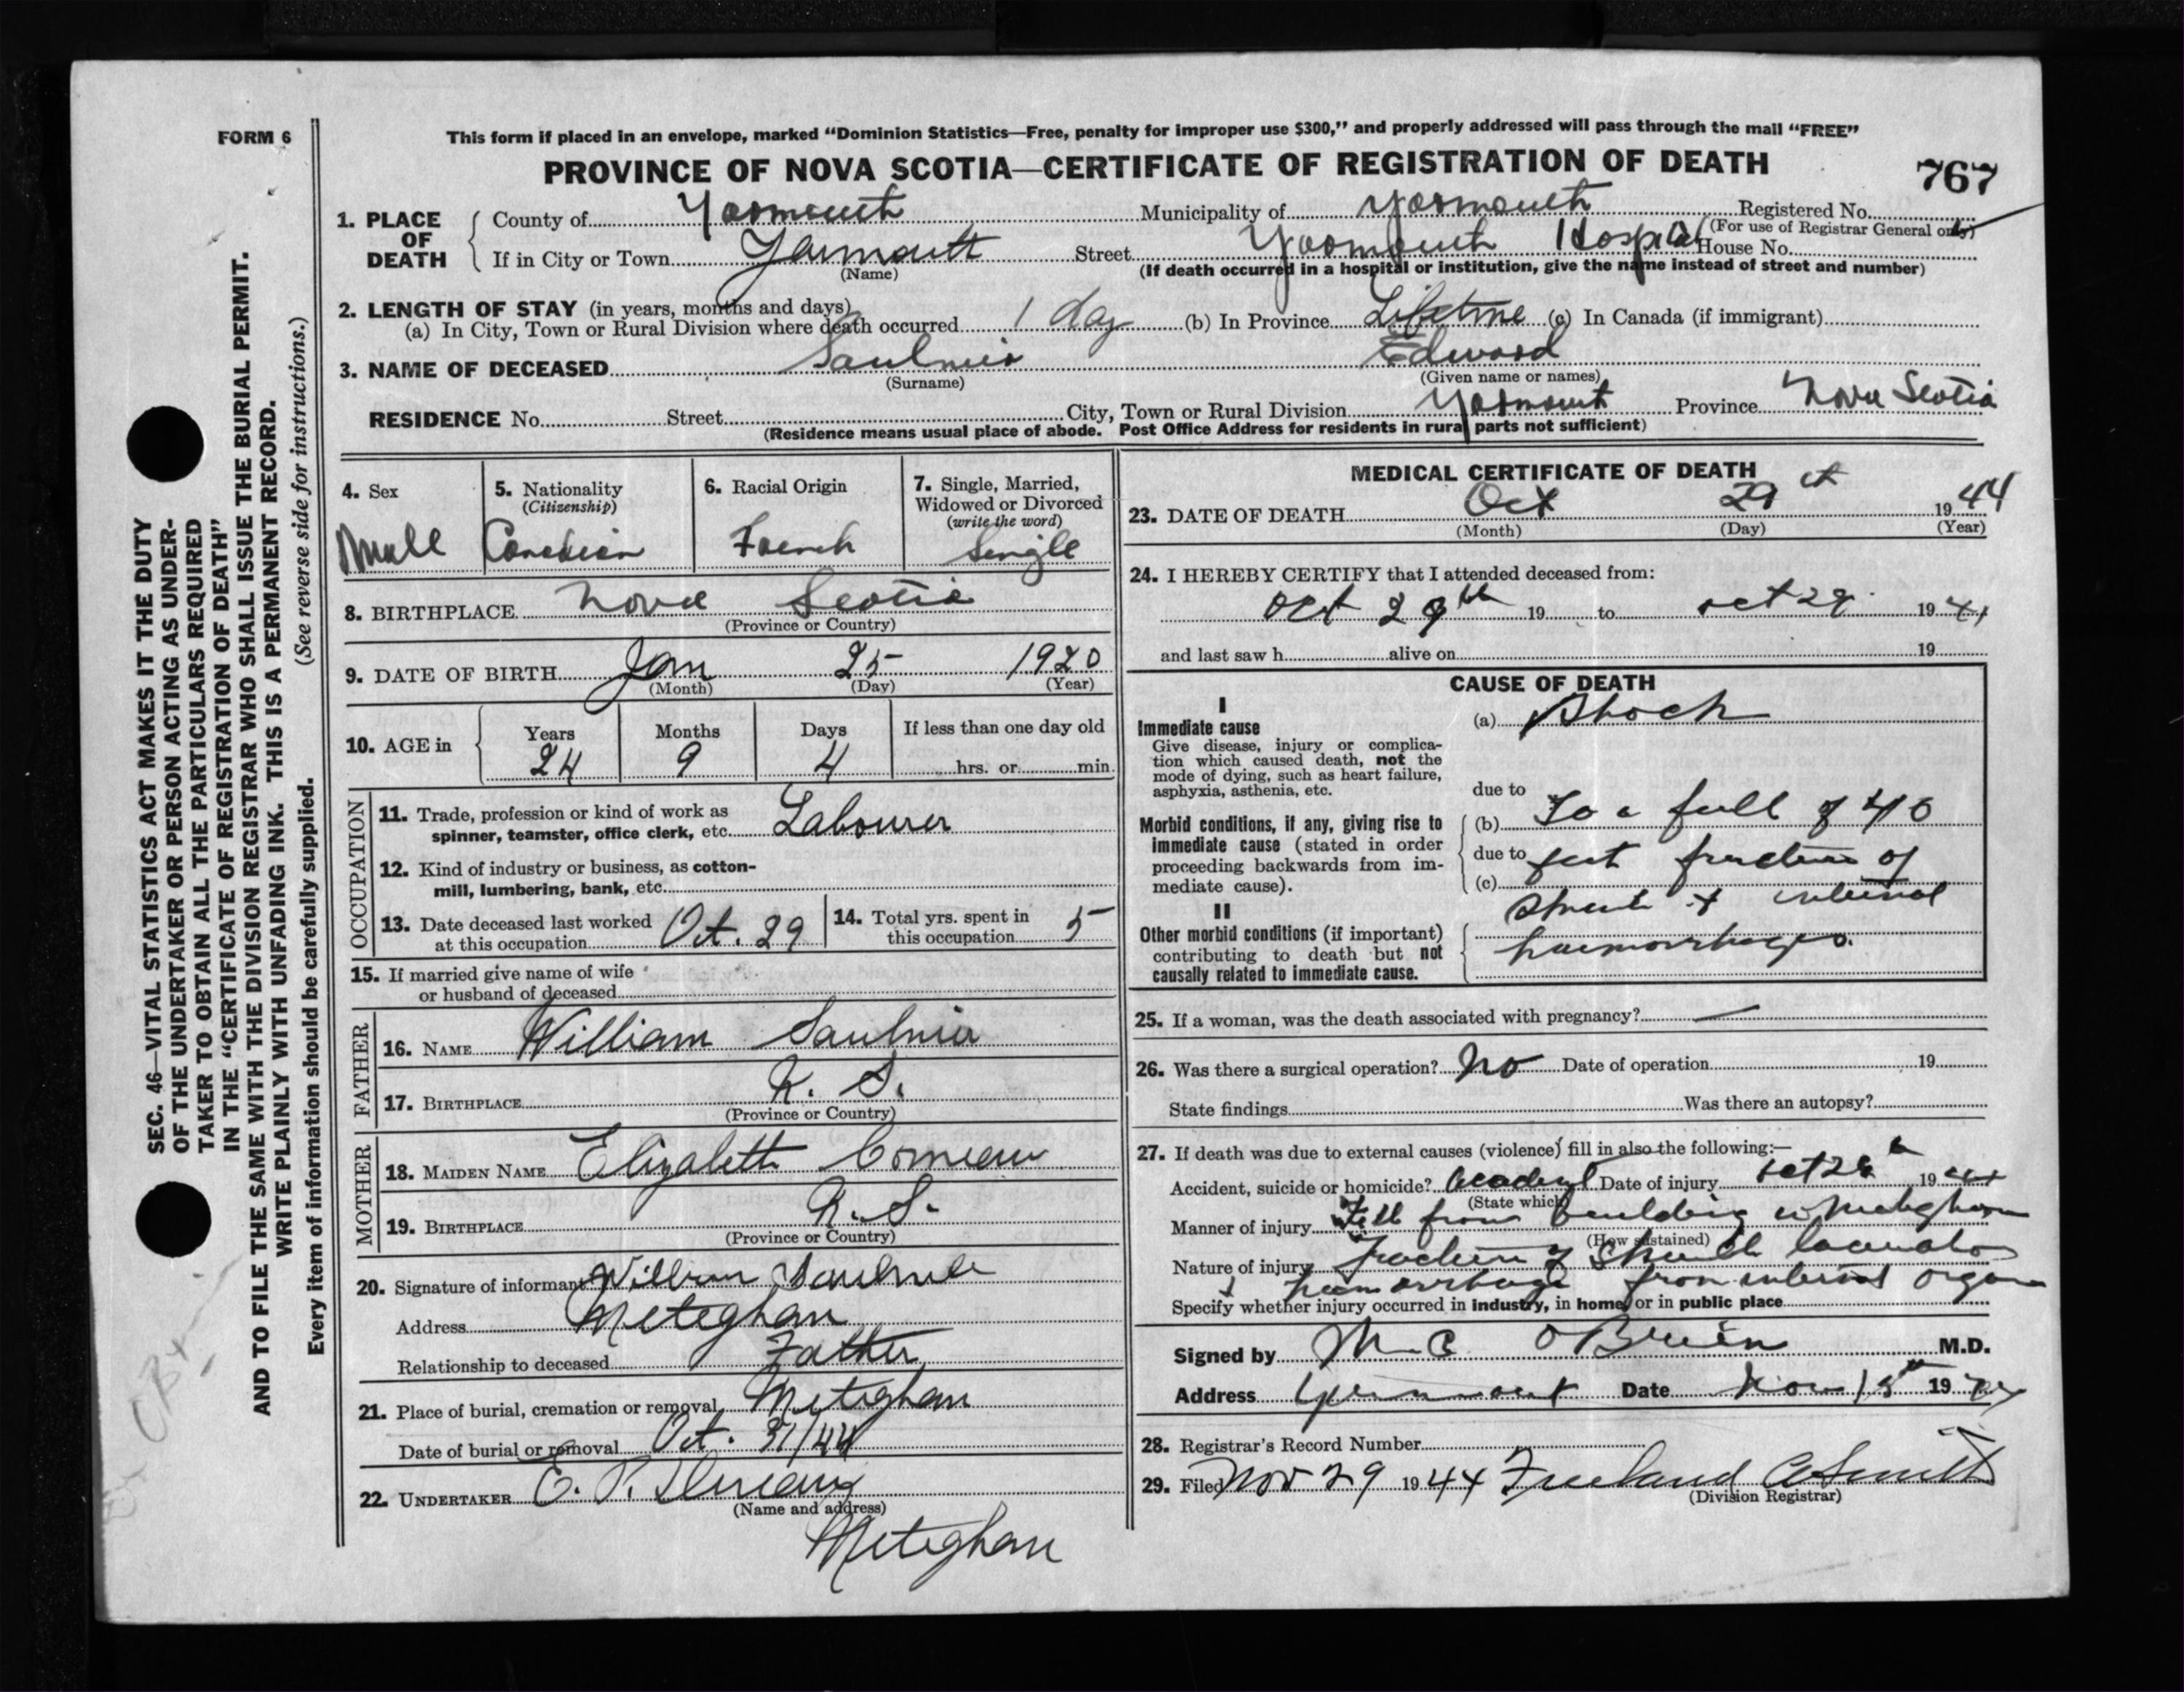 FORM 6
This form if placed in an envelope, marked “Dominion Statistics—Free, penalty for improper use $300,” and properly addressed will pass through the mail “FREE”
PROVINCE OF NOVA SCOTIA—CERTIFICATE OF REGISTRATION OF DEATH
767
1. PLACE OF DEATH
County of Yarmouth Municipality of Yarmouth Registered No.
(For use of Registrar General only)
If in City or Town Yarmouth Street Yarmouth Hospital House No.
(Name) (If death occurred in a hospital or institution, give the name instead of street and number)
2. LENGTH OF STAY (in years, months and days)
(a) In City, Town or Rural Division where death occurred 1 day (b) In Province Lifetime (c) In Canada (if immigrant)
3. NAME OF DECEASED Saulnier Edward
(Surname) (Given name or names)
RESIDENCE No. Street City, Town or Rural Division Yarmouth Province Nova Scotia
(Residence means usual place of abode. Post Office Address for residents in rural parts not sufficient)
4. Sex
Male
5. Nationality
(Citizenship)
Canadian
6. Racial Origin
French
7. Single, Married,
Widowed or Divorced
(write the word)
Single
8. BIRTHPLACE Nova Scotia
(Province or Country)
9. DATE OF BIRTH Jan 25 1920
(Month) (Day) (Year)
10. AGE in
Years Months Days If less than one day old
24 9 4 hrs. or min.
OCCUPATION
11. Trade, profession or kind of work as
spinner, teamster, office clerk, etc. Labourer
12. Kind of industry or business, as cotton-
mill, lumbering, bank, etc.
13. Date deceased last worked
at this occupation Oct. 29
14. Total yrs. spent in
this occupation 5
15. If married give name of wife
or husband of deceased
FATHER
16. NAME William Saulnier
17. BIRTHPLACE N. S.
(Province or Country)
MOTHER
18. MAIDEN NAME Elizabeth Comeau
19. BIRTHPLACE N. S.
(Province or Country)
20. Signature of informant William Saulnier
Address Meteghan
Relationship to deceased Father
21. Place of burial, cremation or removal Meteghan
Date of burial or removal Oct. 31/44
22. UNDERTAKER E. P.
(Name and address)
Meteghan
MEDICAL CERTIFICATE OF DEATH
23. DATE OF DEATH Oct 29 1944
(Month) (Day) (Year)
24. I HEREBY CERTIFY that I attended deceased from:
Oct 29th 19 to Oct 29 1944
and last saw h alive on 19
CAUSE OF DEATH
I
Immediate cause
Give disease, injury or complica-
tion which caused death, not the
mode of dying, such as heart failure,
asphyxia, asthenia, etc.
(a) Shock
due to
Morbid conditions, if any, giving rise to
immediate cause (stated in order
proceeding backwards from im-
mediate cause).
(b) To a fall of 40
due to feet fracture of
(c)
Skull & internal
II
Other morbid conditions (if important)
contributing to death but not
causally related to immediate cause.
haemorrhages.
25. If a woman, was the death associated with pregnancy? —
26. Was there a surgical operation? No Date of operation 19
State findings Was there an autopsy?
27. If death was due to external causes (violence) fill in also the following:—
Accident, suicide or homicide? Accident Date of injury Oct 1944
(State which)
Manner of injury Fell from building in Meteghan
(How sustained)
Nature of injury Fracture of Skull
& haemorrhage from internal organs
Specify whether injury occurred in industry, in home, or in public place
Signed by M. C. O'Brien M.D.
Address Yarmouth Date Nov 15th 1944
28. Registrar's Record Number
29. Filed Nov 29 1944 Freeland A Smith
(Division Registrar)
SEC. 46—VITAL STATISTICS ACT MAKES IT THE DUTY
OF THE UNDERTAKER OR PERSON ACTING AS UNDER-
TAKER TO OBTAIN ALL THE PARTICULARS REQUIRED
IN THE “CERTIFICATE OF REGISTRATION OF DEATH”
AND TO FILE THE SAME WITH THE DIVISION REGISTRAR WHO SHALL ISSUE THE BURIAL PERMIT.
WRITE PLAINLY WITH UNFADING INK. THIS IS A PERMANENT RECORD.
Every item of information should be carefully supplied. (See reverse side for instructions.)